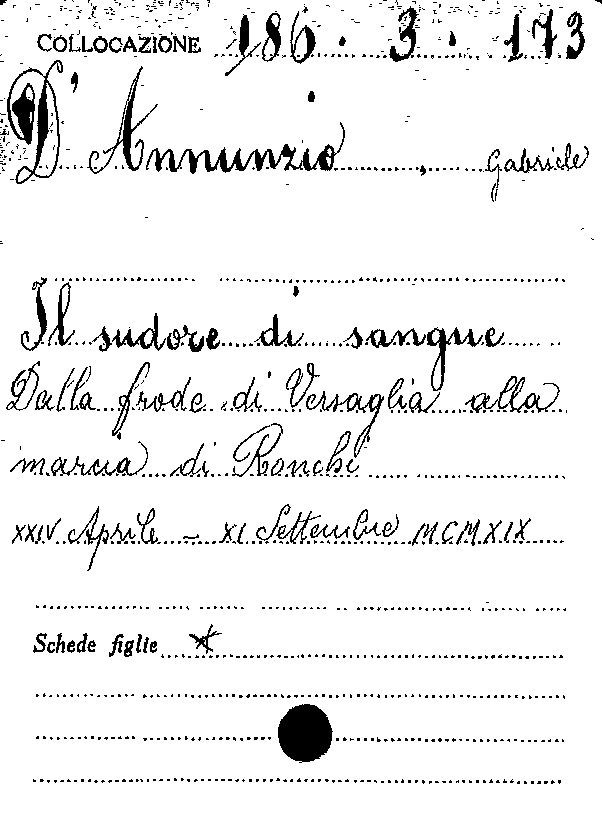 COLLOCAZIONE 186. 3. 173
D'Annunzio, Gabriele
Il sudore di sangue
Dalla frode di Versaglia alla
marcia di Ronchi
XXIV Aprile - XI Settembre MCMXIX
Schede figlie